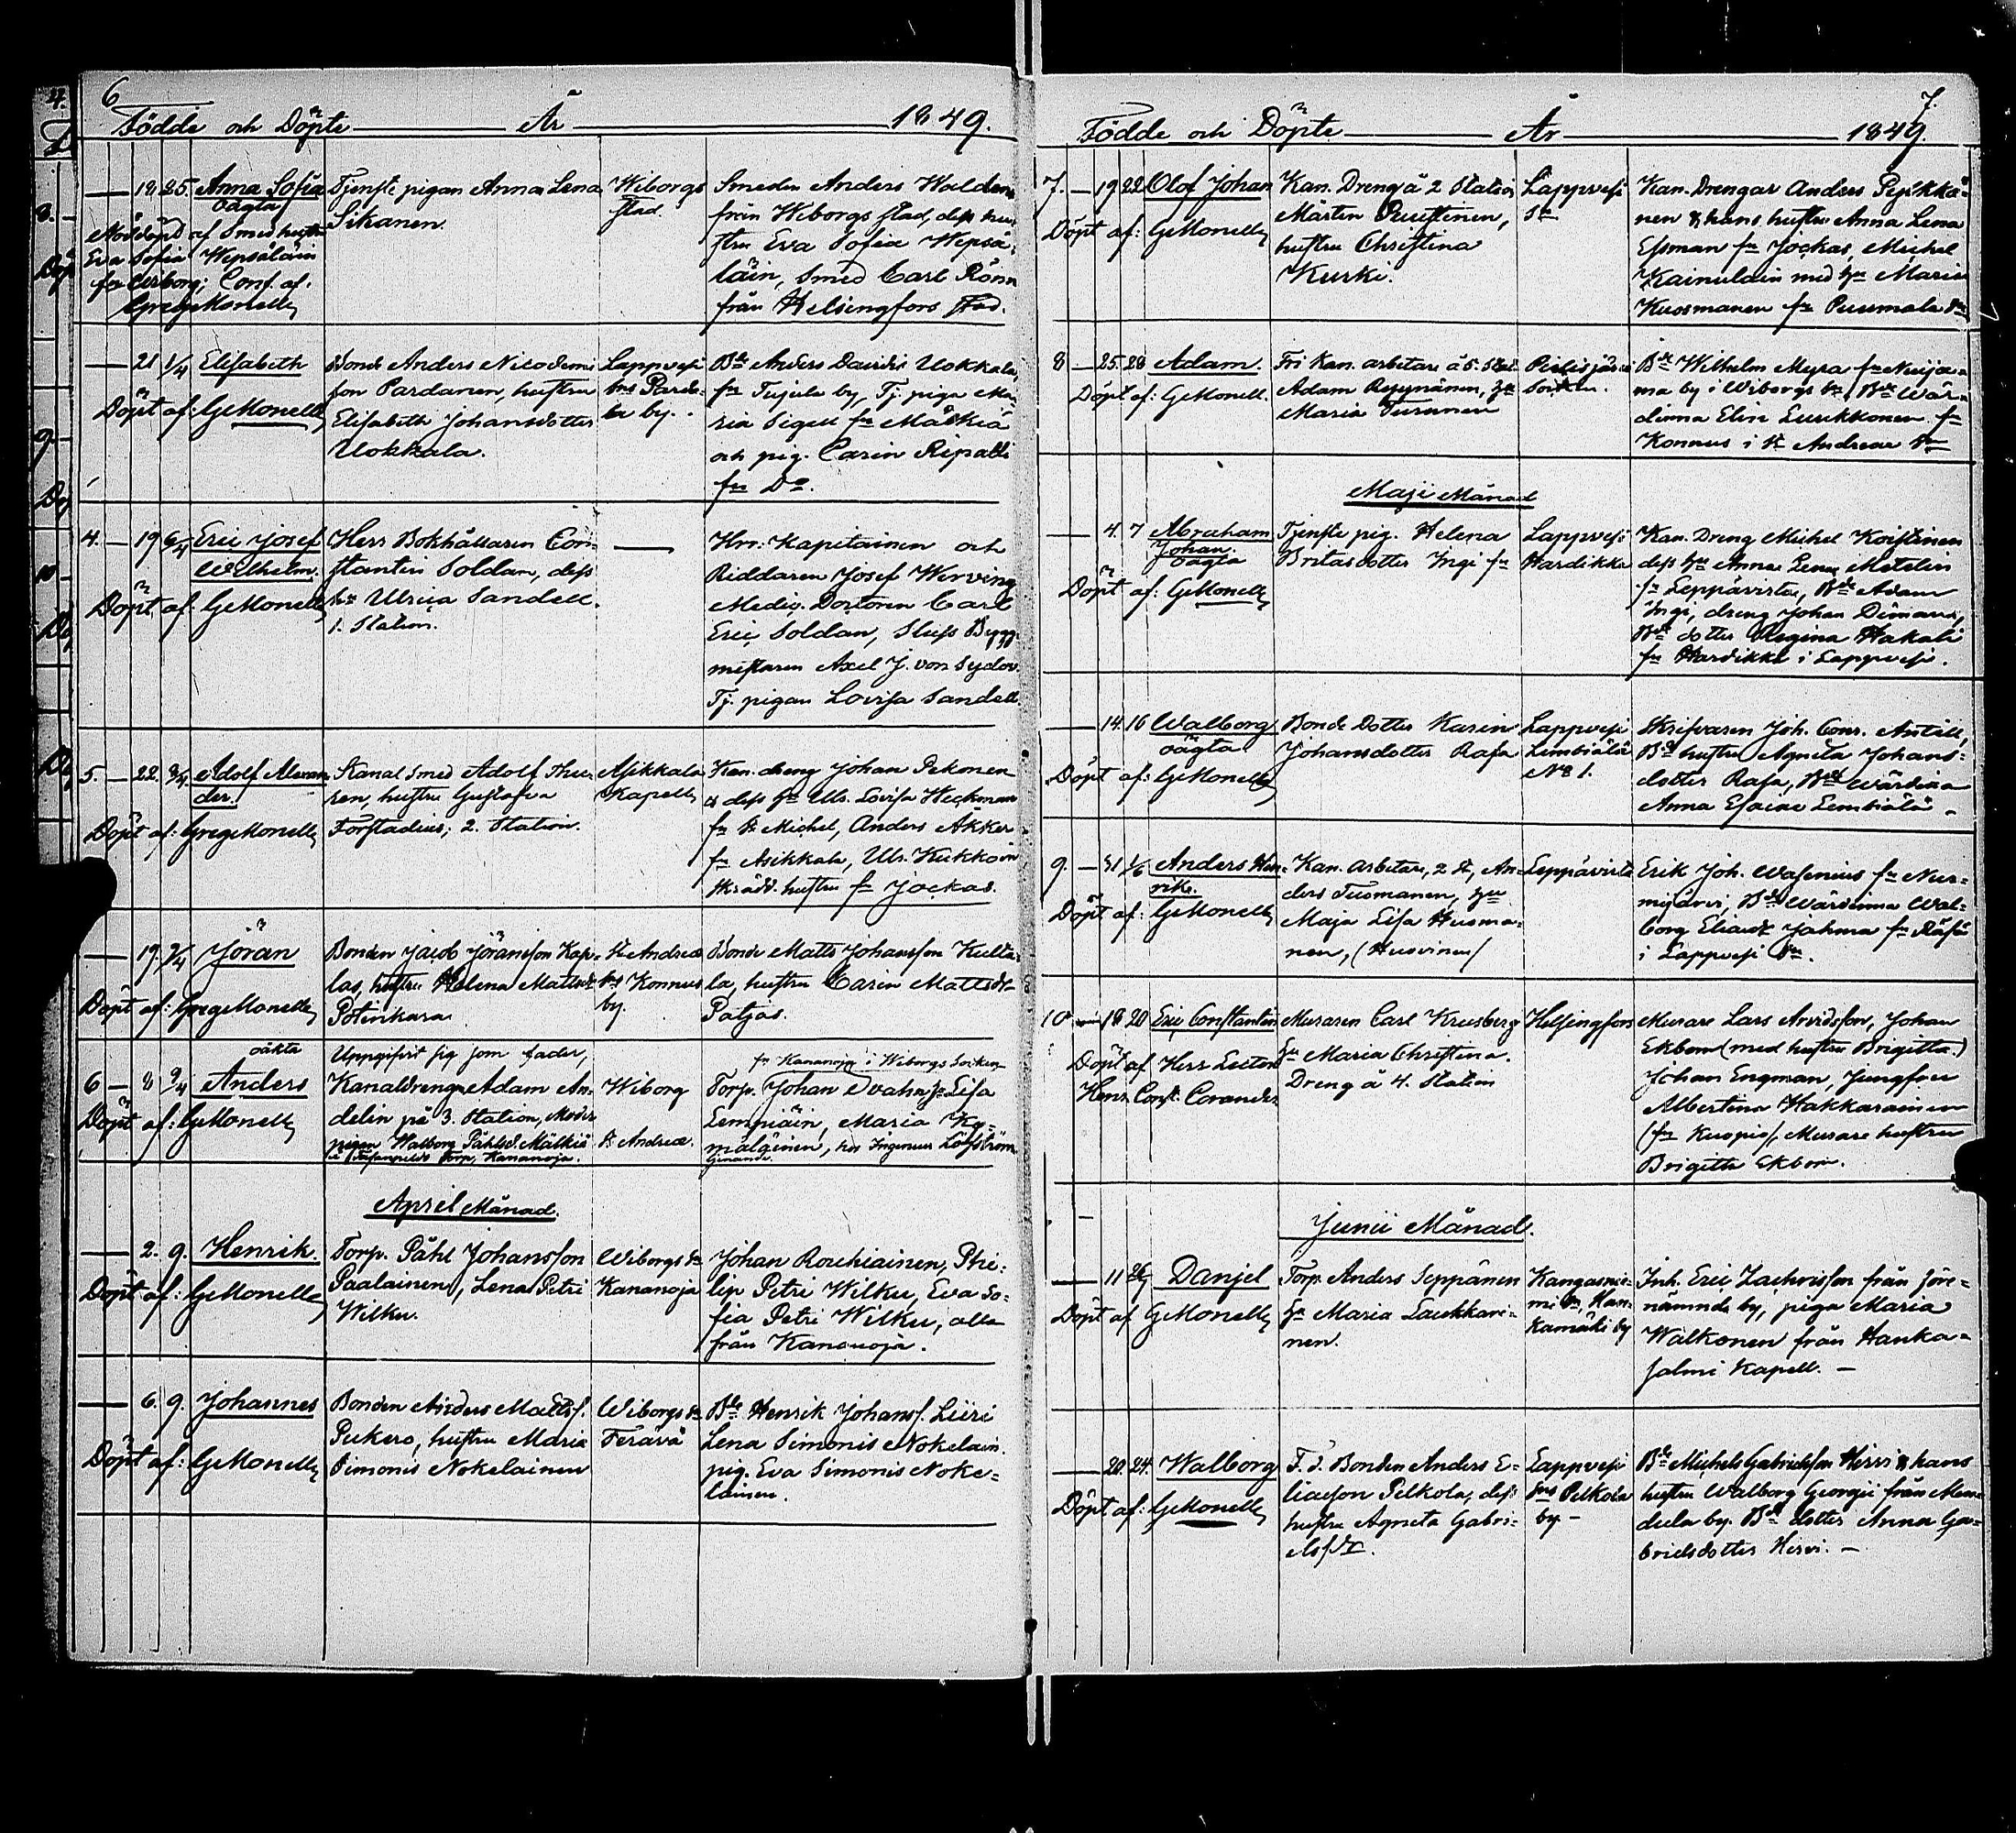 6
Födde och Döpte År 1849.
18 25. Anna Sofia
oägta
Tjenste pigan Anna Lena
Sikanen.
Wiborgs
stad.
Nöddöpt af Smed hustr
Eva Sofia Wepsäläin
Conf. af.
GregMonell
Smeden Anders Walden
från Wiborgs stad, dess hu-
stru Eva Sofia Wepsä-
läin, Smed Carl Rönn
från Helsingfors stad.
21 1/4 Elisabeth
Döpt af: GMonell
Bonde Anders Nicodemi
son Pardanen, hustru
Elisabeth Johansdotter
Uokkala.
Lappvesi
by.
Bde Anders Davidis Uokkala,
fr Tujula by, Tj. piga Ma-
ria Sigell fr Mälkiä
och pig. Carin Ripatti
fr Do.
4. 19 6/4 Eric Josef
Wilhelm.
Döpt af: GMonell
Herr Bokhållaren Con-
stantin Soldan, dess
hu Ulrica Sandell.
1. Station.
Hrr. Kapitainen och
Riddaren Josef Werving
Medic. Doctoren Carl
Eric Soldan, Sluss Bygg-
mestaren Axel J. von Sydov
Tj. pigan Lovisa Sandell
5. 22. Adolf Alexan-
der.
Döpt af: GregMonell
Kanal Smed Adolf Thu-
ren, hustru Gustafva
Forstadius; 2. Station.
Asikkala
Kapell
Kan. dreng Johan Pekonen
& dess Hu Ulr. Lovisa Heckman
fr St Michel, Anders Akker
fr Asikkala, Ulr. Kukkoin
Skrädd. hustru fr Jockas.
19. 7/4 Jöran
Döpt af: GregMonell
Bonden Jacob Jöransson Kap-
las, hustru Helena Mattsdr
Potinkara
St Andreæ
Konnus
by.
Bonde Matts Johansson Kulta-
la, hustru Carin Mattsdr
Patjas.
oäkta
6 8 9/4 Anders
Döpt af: GMonell
Uppgifvit sig som fader,
Kanaldrengen Adam An-
delin på 3. Station, Moder
pigan Walborg Påhlsd. Mälkiä
Torp, Kananoja.
Wiborg
St Andreæ.
fr Kananoja i Wiborgs Socken
Torp. Johan Lisa
Lempiäin, Maria Ky-
mäläinen, hos Ingenieur Löfström
April Månad.
2. 9. Henrik.
Döpt af: GMonell
Torp. Påhl Johansson
Paalainen, Lena Petri
Wilku.
Wiborgs Sn
Kananoja
Johan Rouhiainen, Phi-
lip Petri Wilku, Eva So-
fia Petri Wilku, alla
från Kananoja.
6. 9. Johannes
Döpt af: GMonell
Bonden Anders Mattss.
Pukero, hustru Maria
Simonis Nokelainen
Wiborgs Sn
Terävä
Bde Henrik Johanss. Liiri
Lena Simonis Nokelain.
pig. Eva Simonis Noke-
lainen.
7.
Födde och Döpte År 1849.
7. 19 22 Olof Johan
Döpt af: GMonell
Kan. Dreng å 2 Station
Mårten Puustinen,
hustru Christina
Kurki.
Lappvesi
Sn
Kan. Drengar Anders Pejkkä-
nen & hans hustru Anna Lena
Essman fr Jockas, Michel
Kainulain med hu Maria
Kuosmanen fr Puumala Sn
8 25. 28 Adam.
Döpt af: GMonell.
Fri Kan. arbetare å 5. Stat.
Adam hu
Maria Turunen
Pielisjärvi
Socken.
Bde Wilhelm Myra fr Nuija-
ma by i Wiborgs Sn, Bde Wär-
dinna Elin Luukkonen fr
Konnus i St Andreæ Sn
Maji Månad
4. 7 Abraham
Johan.
oägta
Döpt af: GMonell
Tjenste pig. Helena
Britasdotter Ingi fr
Lappvesi
Hardikka
Kan. Dreng Michel Koistinen
dess hu Anna Lena Metelin
fr Leppävirta, Bde Adam
Ingi, dreng Johan
Bde dotter Regina Hakali
fr Hardikka i Lappvesi.
14. 16 Walborg
oägta
Döpt af: GMonell
Bonde Dotter Karin
Johansdotter Rasa
Lappvesi
Lembiälä
No 1.
Skrifvaren Joh. Conr. Antell,
Bde hustru Agneta Johans-
dotter Rasa, Bde Wärdina
Anna Esaiæ Lembiälä
9. 31 1/6 Anders Hen-
rik.
Döpt af: GMonell
Kan. arbetare, 2 St, An-
ders Tusmanen, hu
Maja Lisa Husma-
nen, (Husvinen)
Leppävirta
Erik Joh. Wasenius fr Nur-
mijärvi, Bde Wärdinna Wal-
borg Eliædr Jahma fr
i Lappvesi Sn.
10 18 20 Eric Constantin
Döpt af Herr Lector
Henr. Const. Corander
Muraren Carl Krusberg
Hu Maria Christina.
Dreng å 4. Station
Helsingfors
Murare Lars Arvidsson, Johan
Ekbom (med hustru Brigitta.)
Johan Engman, Jungfru
Albertina Hakkarainen
(fr Kuopio), Murare hustru
Brigitta Ekbom.
Junii Månad.
11 26 Danjel
Döpt af GMonell
Torp. Anders Seppänen
Hu Maria Laukkari-
nen.
Kangasnie-
mi Sn, Han-
kamäki by
Inh. Eric Zachrisson från före-
nämnde by, piga Maria
Walkonen från Hanka-
salmi Kapell. —
20. 24. Walborg
Döpt af: GMonell
F. d. Bonden Anders E-
liæson Pelkola, dess
hustru Agneta Gabri-
elsdr.
Lappvesi
Sns Pelkola
by —
Bde Michels Gabrielsson Hirvi & hans
hustru Walborg Georgii från Mem-
dula by. Bde dotter Anna Ga-
brielsdotter Hirvi. —